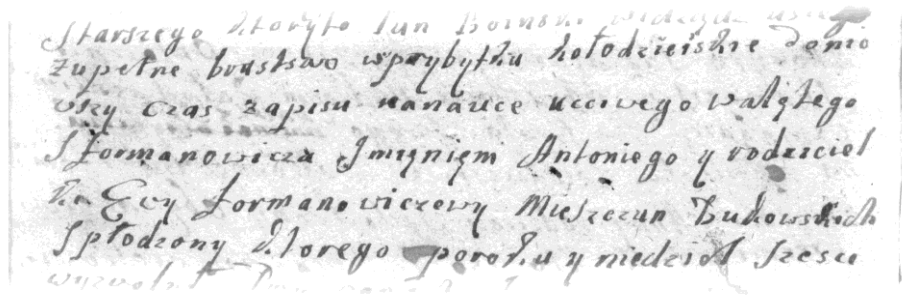 Starszego ktoryto Pan
zupełne brustswo wprybytku kołodzieiskie Donio
wszy czas zapisu nanauce uccivego walętego
Sformanowicza Imięnięm Antoniego y rodziciel
ki Ewy Formanowiczewy Mieszczan Zukowskich
Spłodzony ktorego poroku y niedziel szescu